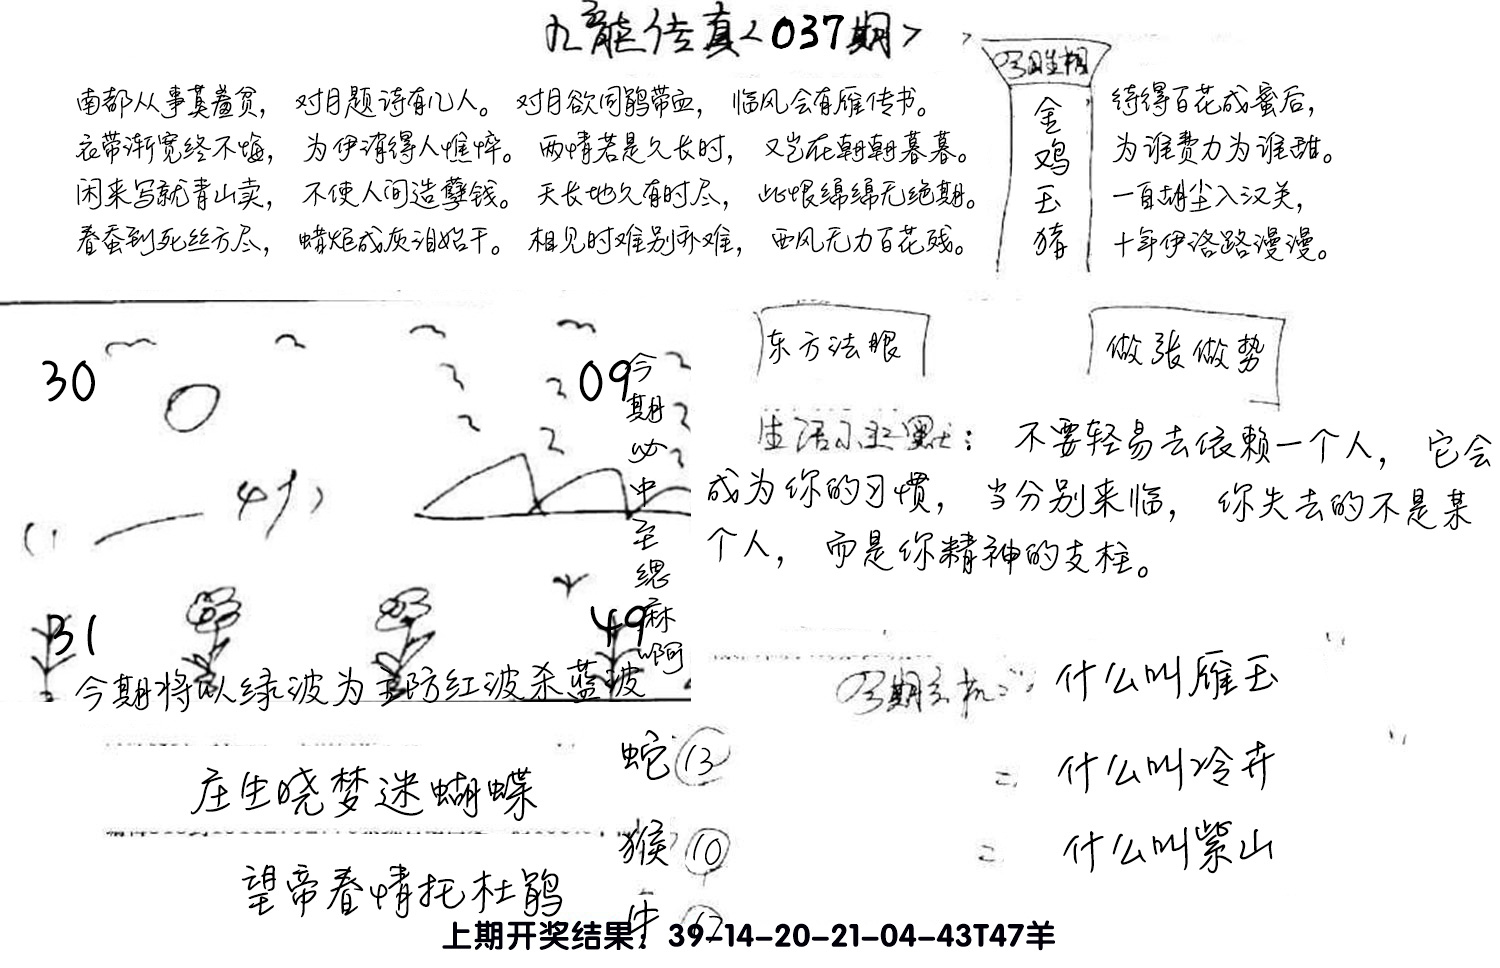 九龍传真<037期>
南都从事莫羞贫，对月题诗有几人。对月欲问鹃带血，临风会有雁传书。
衣带渐宽终不悔，为伊消得人憔悴。两情若是久长时，又岂在朝朝暮暮。
闲来写就青山卖，不使人间造孽钱。天长地久有时尽，此恨绵绵无绝期。
春蚕到死丝方尽，蜡炬成灰泪始干。相见时难别亦难，西风无力百花残。
金鸡玉猪
待得百花成蜜后，
为谁费力为谁甜。
一自胡尘入汉关，
十年伊洛路漫漫。
30
09
31
49
今期必中
今期将以绿波为主防红波杀蓝波
东方法眼
做张做势
不要轻易去依赖一个人，它会
成为你的习惯，当分别来临，你失去的不是某
个人，而是你精神的支柱。
什么叫雁玉
什么叫冷卉
什么叫紫山
庄生晓梦迷蝴蝶
望帝春情托杜鹃
蛇 13
猴 10
牛
上期开奖结果：39-14-20-21-04-43T47羊